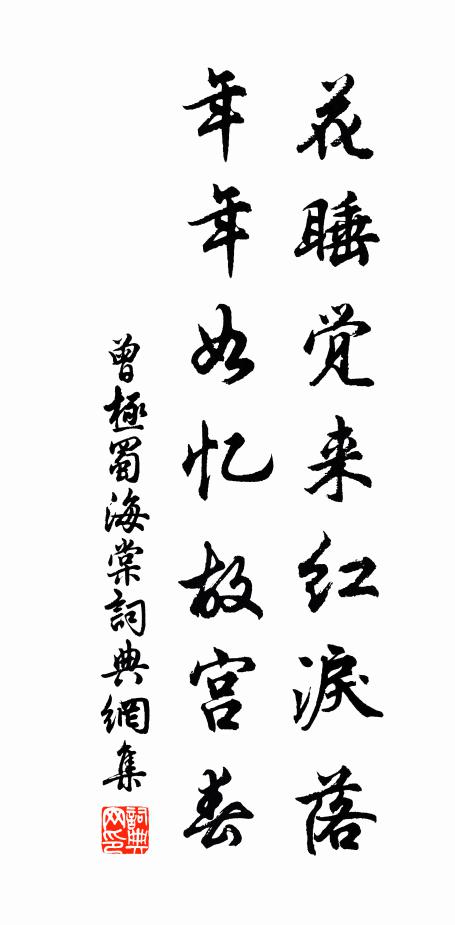 花睡觉来红淚落
年年如忆故宫春
曾極蜀海棠詞典網集
詞典网印